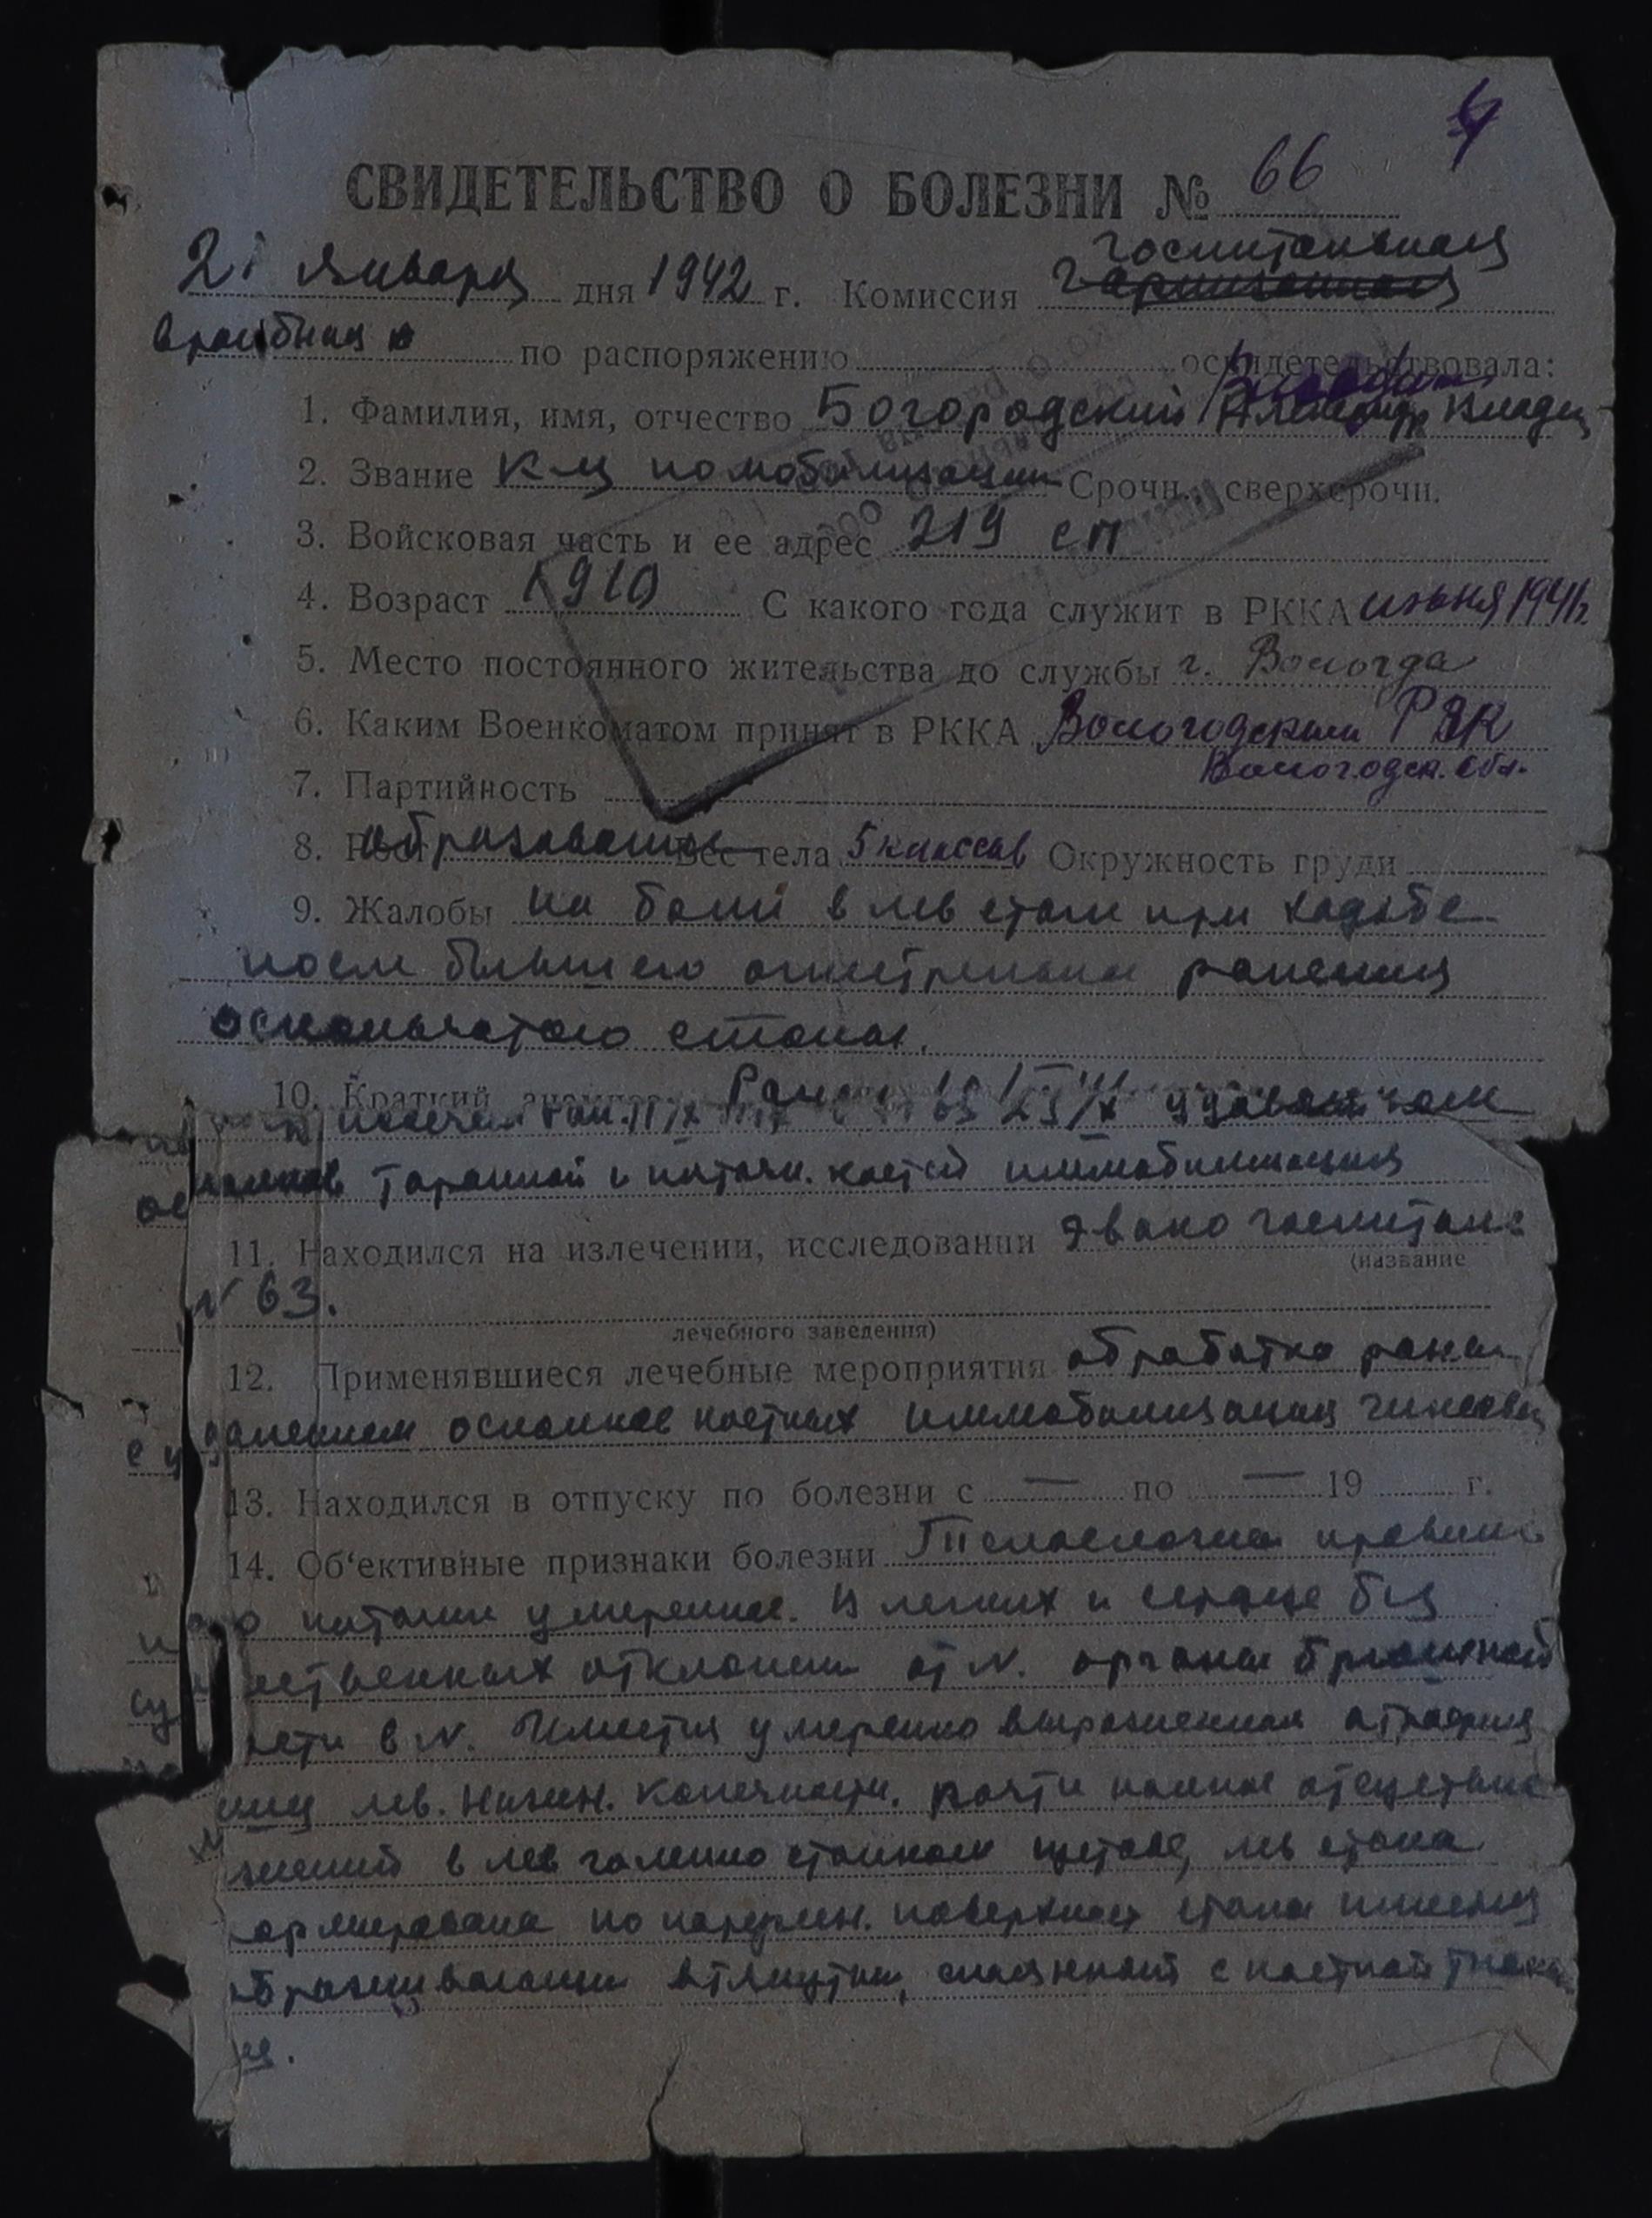 СВИДЕТЕЛЬСТВО О БОЛЕЗНИ № 66
госпитальная
января дня 1942 г. Комиссия гарнизонная
врачебная по распоряжению освидетельствовала:
1. Фамилия, имя, отчество Богородский Александр Владим
2. Звание К-ц по мобилизации Срочн., сверхсрочн.
3. Войсковая часть и ее адрес 219 сп
4. Возраст 1910 С какого года служит в РККА 1941 г.
5. Место постоянного жительства до службы г. Вологда
6. Каким Военкоматом принят в РККА Вологодским РВК
Вологодск. обл.
7. Партийность
8. Рост образование Вес тела 5 классов Окружность груди
9. Жалобы на боли в лев стопе при ходьбе
после бывшего огнестрельн ранения
оскольчатого стопы.
10. Краткий
осколков таранной и пяточн. костей иммобилизация
11. Находился на излечении, исследовании Эвакогоспиталь
(название
№ 63.
лечебного заведения)
12. Применявшиеся лечебные мероприятия обработка раны
с удалением осколков костных иммобилизация гипсовая
13. Находился в отпуску по болезни с — по — 19 г.
14. Об'ективные признаки болезни Телосложен правиль
но питание умеренное. В легких и сердце без
существенных отклонен от N. органы брюшной
ти в N. Имеется умеренно выраженная атрофия
лев. нижн. конечности. почти полное отсутствие
жений в лев голеностопном суставе, лев стопа
по наружн. поверхност стопы имеется
втянутый, спаянный с костной ткань